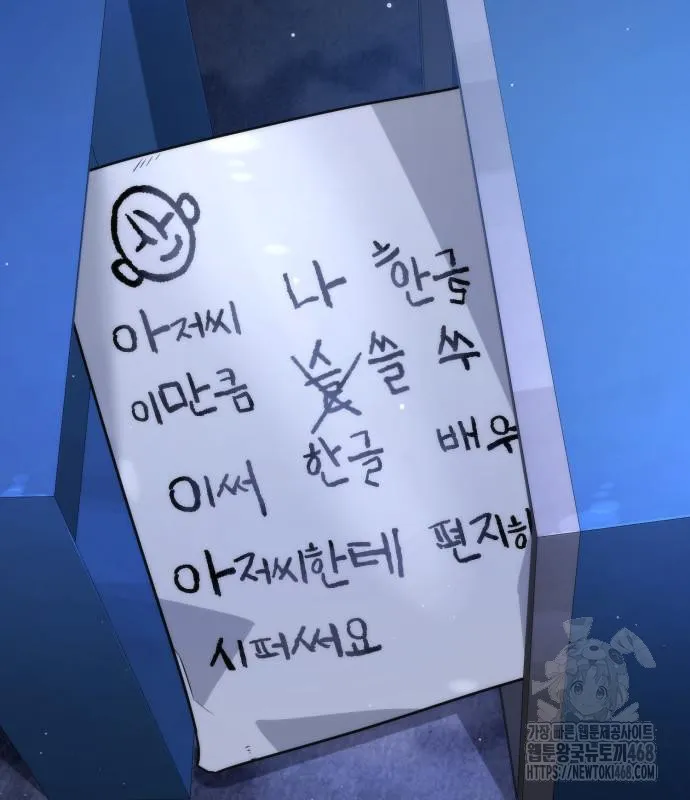 아저씨 나 한글
이만큼 쓸 쑤
이써 한글 배우
아저씨한테 편지
시퍼써요
가장 빠른 웹툰제공사이트
웹툰왕국뉴토끼468
HTTPS://NEWTOKI468.COM